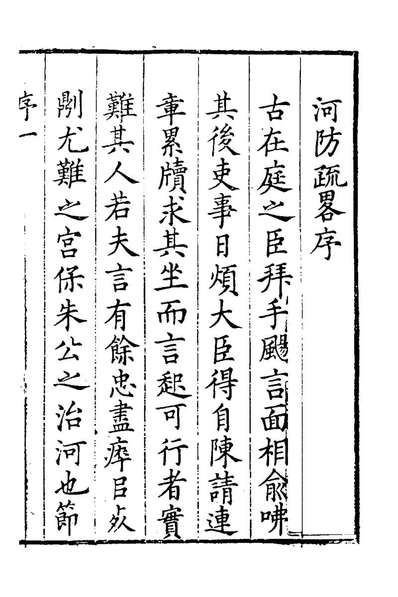 河防疏畧序
古在庭之臣拜手颺言面相兪咈
其後吏事日煩大臣得自陳請連
章累牘求其坐而言起可行者實
難其人若夫言有餘忠盡瘁㠯死
𠟭尤難之宮保朱公之治河也節
序一